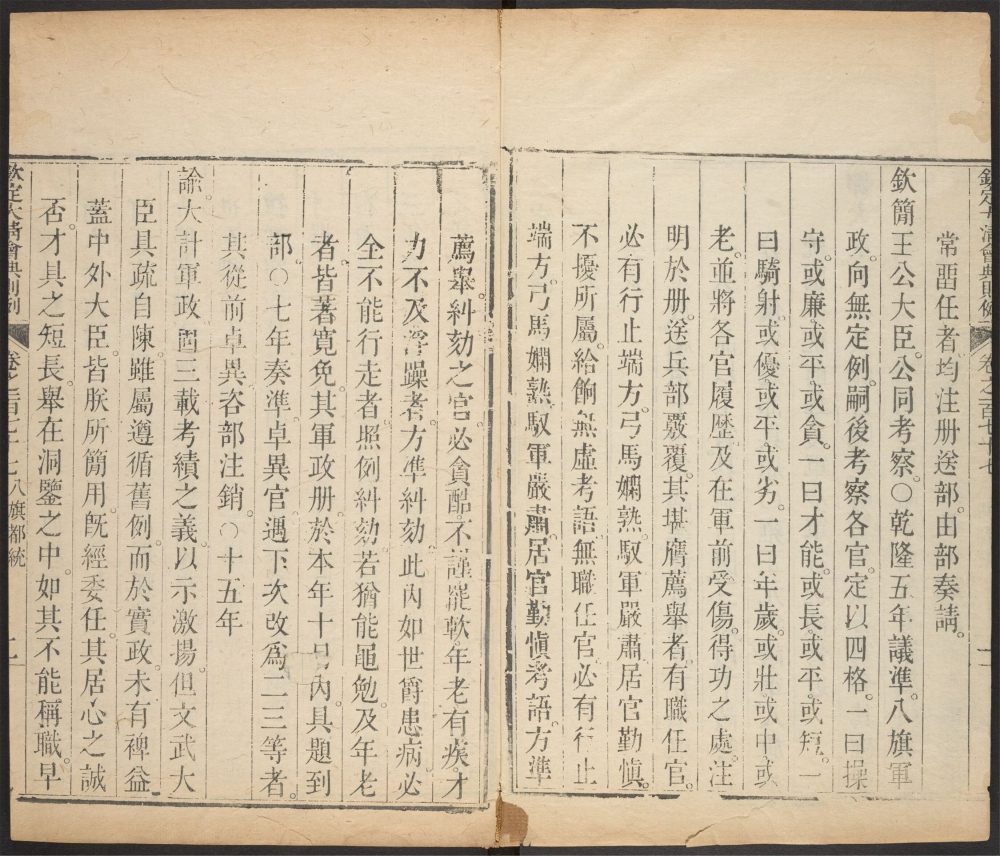 欽定大清會典則例 卷之一百七十七
常畱任者均注册送部由部奏請。
欽簡王公大臣公同考察。○乾隆五年議準。八旗軍
政。向無定例。嗣後考察各官。定以四格。一曰操
守。或廉或平或貪。一曰才能。或長或平。或短。一
曰騎射。或優或平或劣。一曰年歲。或壯或中或
老。並將各官履歷。及在軍前受傷得功之處。注
明於册。送兵部覈覆。其堪膺薦舉者。有職任官。
必有行止端方。弓馬嫻熟。馭軍嚴肅。居官勤慎。
不擾所屬。給餉無虛考語。無職任官。必有行止
端方。弓馬嫻熟。馭軍嚴肅。居官勤慎考語。方準
薦舉。糾劾之官。必貪酷。不謹。罷軟。年老。有疾。才
力不及。浮躁者。方準糾劾。此內如世爵患病。必
全不能行走者。照例糾劾。若猶能黽勉。及年老
者。皆著寬免。其軍政册。於本年十月內。具題到
部。○七年奏準。卓異官。遇下次改爲二三等者。
其從前卓異咨部注銷。○十五年
諭大計軍政。固三載考績之義。以示激揚。但文武大
臣具疏自陳。雖屬遵循舊例。而於實政未有裨益
蓋中外大臣。皆朕所簡用。旣經委任。其居心之誠
否。才具之短長。舉在洞鑒之中。如其不能稱職。早
欽定大清會典則例 卷之一百七十七 八旗都統